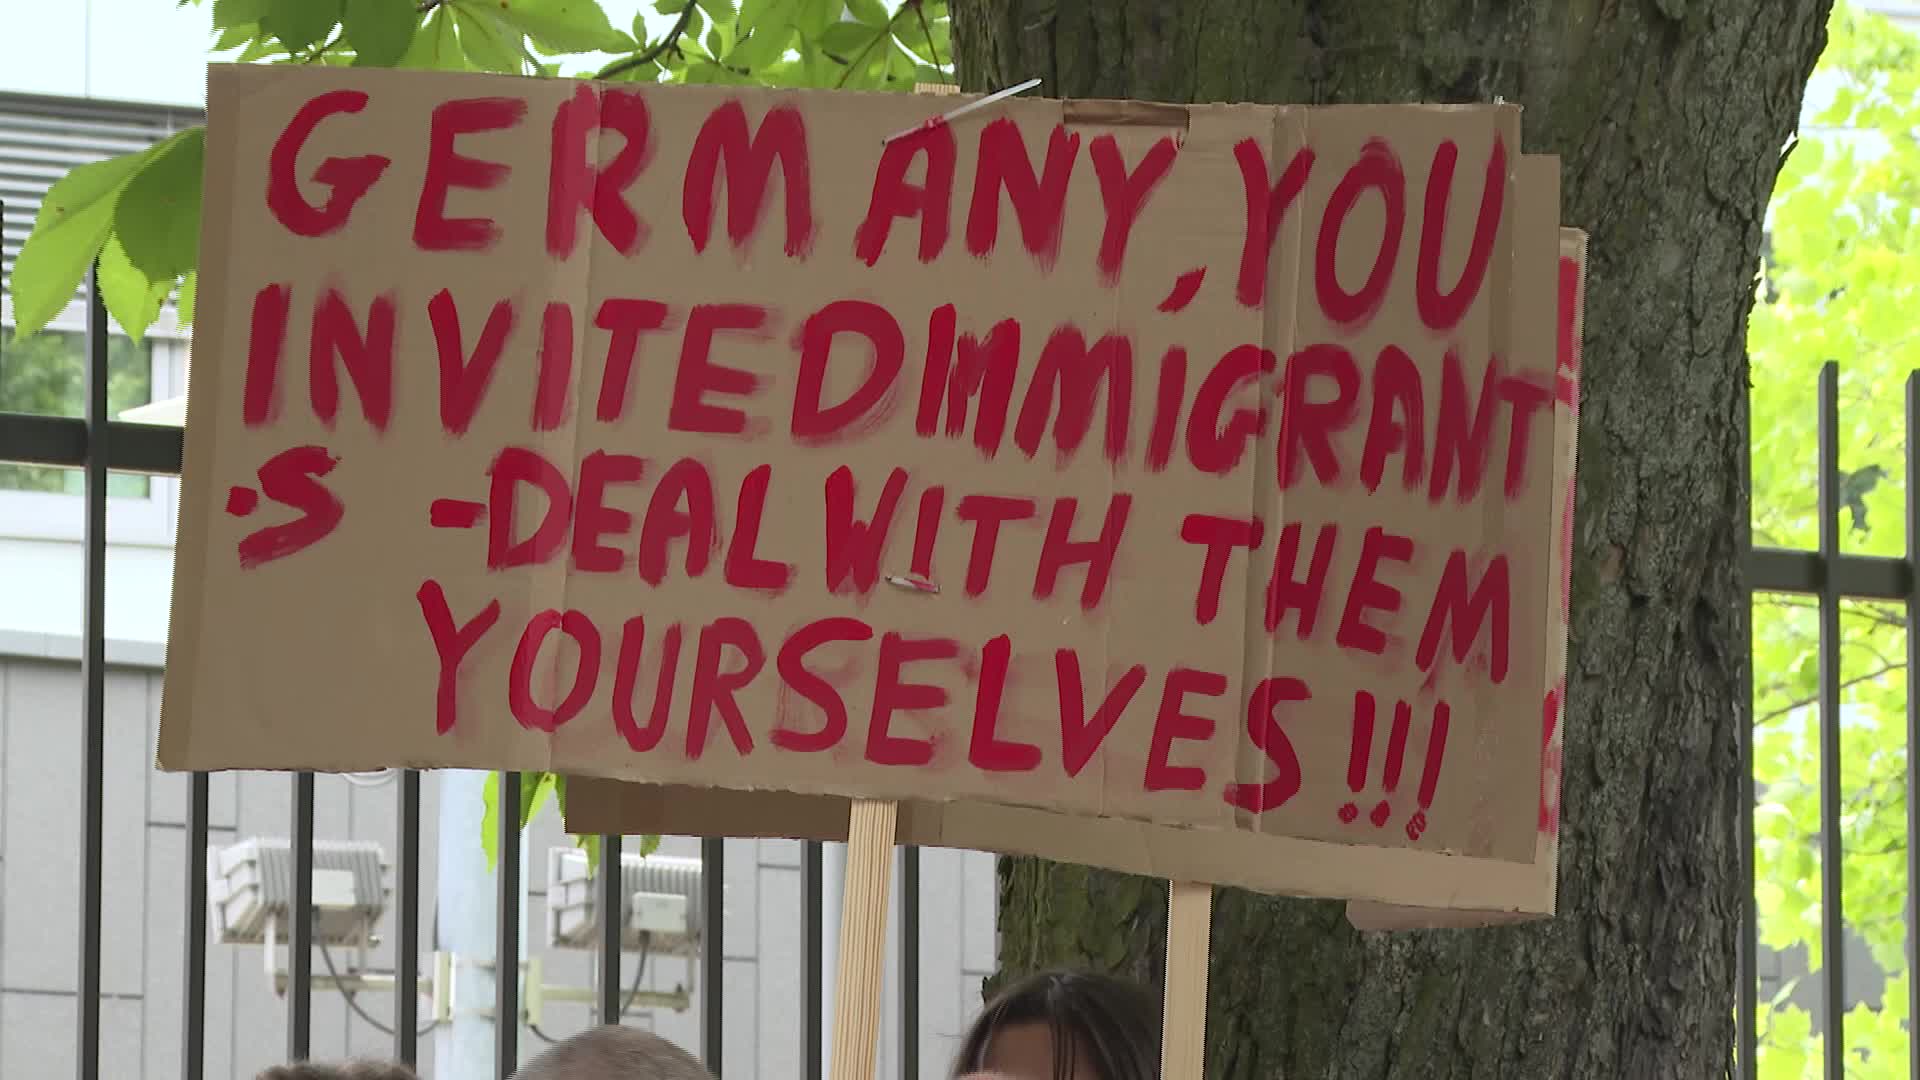 GERMANY, YOU
INVITED IMMIGRANT
-S -DEAL WITH THEM
YOURSELVES!!!